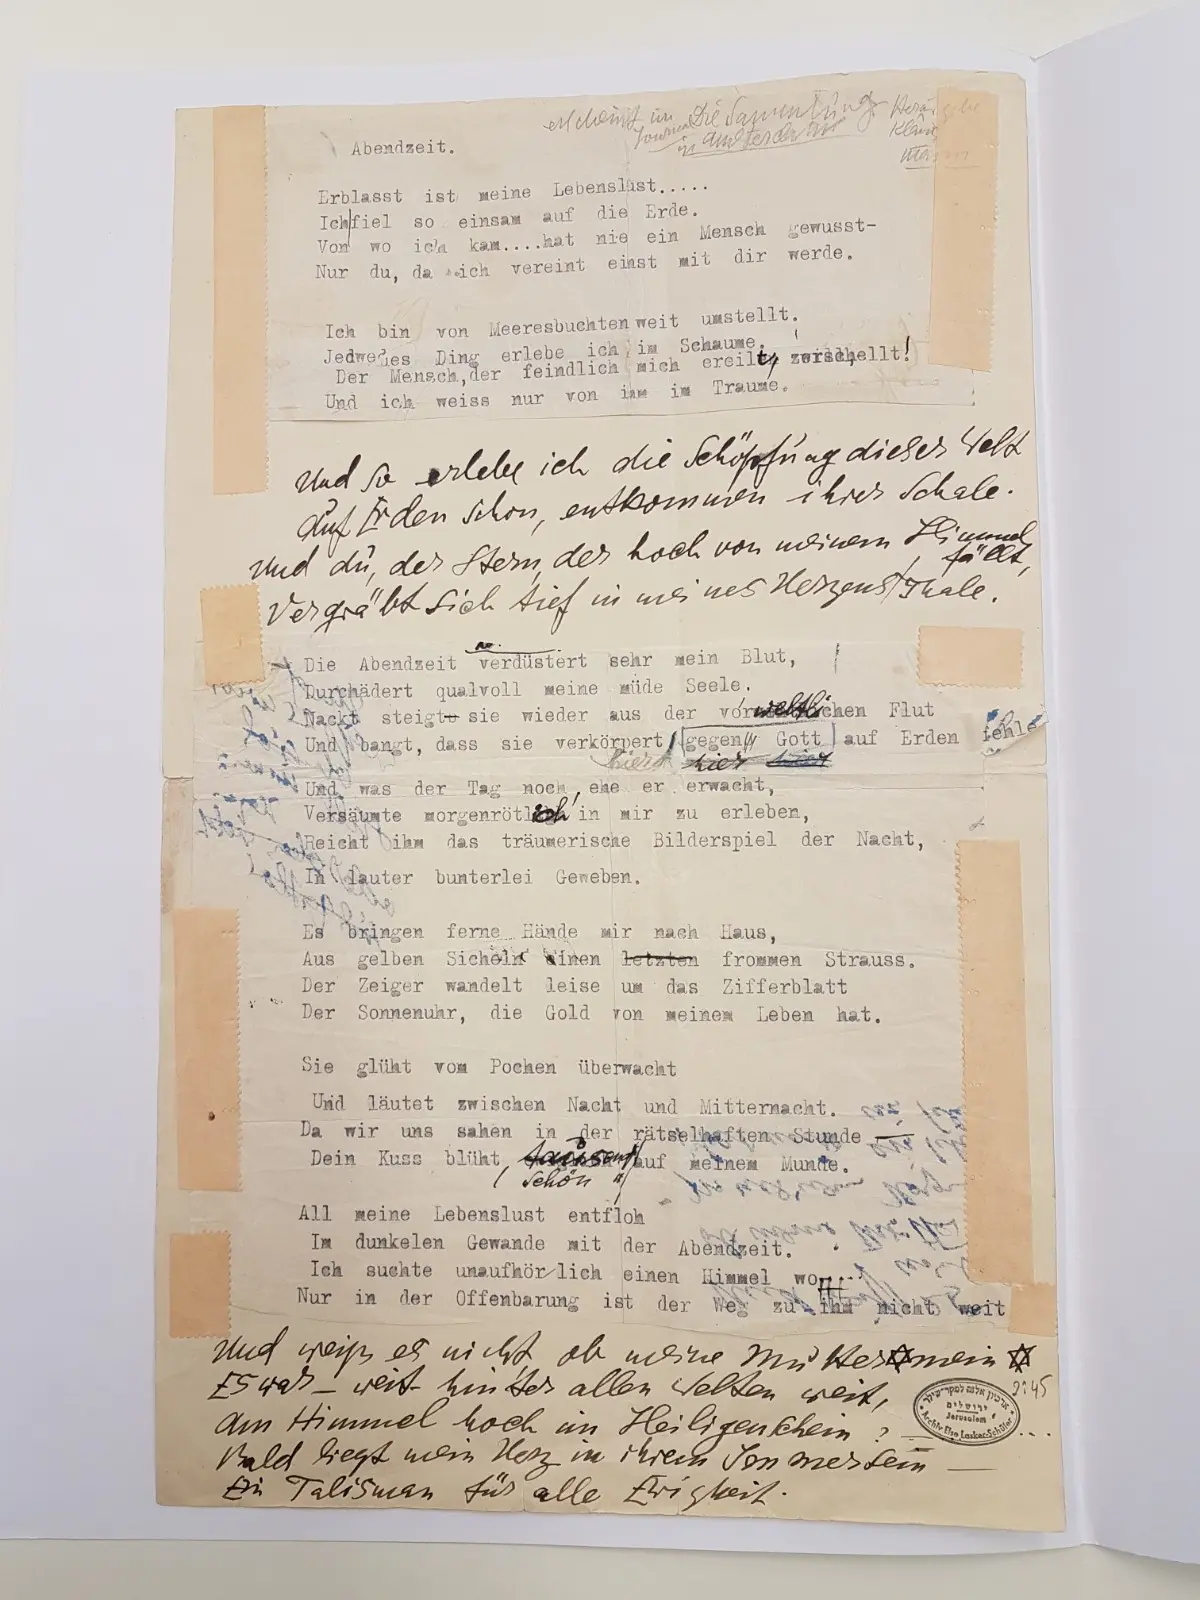 erscheint im Journal Die Sammlung
in Amsterdam
Klaus
Mann
Abendzeit.
Erblasst ist meine Lebenslust.....
Ich fiel so einsam auf die Erde.
Von wo ich kam....hat nie ein Mensch gewusst-
Nur du, da ich vereint einst mit dir werde.
Ich bin von Meeresbuchten weit umstellt.
Jedwedes Ding erlebe ich im Schaume.
Der Mensch,der feindlich mich ereilt, zerschellt!
Und ich weiss nur von ihm im Traume.
Und so erlebe ich die Schöpfung dieser Welt
Auf Erden schon, entkommen ihrer Schale.
Und du, der Stern, der hoch von meinem Himmel fällt,
Vergräbt sich tief in meines Herzens Thale.
Die Abendzeit verdüstert sehr mein Blut,
Durchädert qualvoll meine müde Seele.
Nackt steigt sie wieder aus der vorweltlichen Flut
Und bangt, dass sie verkörpert gegen Gott auf Erden fehle
hier hier
Und was der Tag noch, ehe er erwacht,
Versäumte morgenrötlich in mir zu erleben,
Reicht ihm das träumerische Bilderspiel der Nacht,
In lauter bunterlei Geweben.
Es bringen ferne Hände mir nach Haus,
Aus gelben Sicheln einen letzten frommen Strauss.
Der Zeiger wandelt leise um das Zifferblatt
Der Sonnenuhr, die Gold von meinem Leben hat.
Sie glüht vom Pochen überwacht
Und läutet zwischen Nacht und Mitternacht.
Da wir uns sahen in der rätselhaften Stunde —
Dein Kuss blüht, tausend auf meinem Munde.
schön
All meine Lebenslust entfloh
Im dunkelen Gewande mit der Abendzeit.
Ich suchte unaufhörlich einen Himmel wo....
Nur in der Offenbarung ist der Weg zu ihm nicht weit
Und weiß es nicht ob meine Mutter mein
Es war – weit hinter allen Welten weit,
Am Himmel hoch im Heiligenschein?
Bald liegt mein Herz in ihrem
Ein Talisman für alle Ewigkeit.
2:45
ירושלים
Jerusalem
Archiv Else Lasker-Schüler